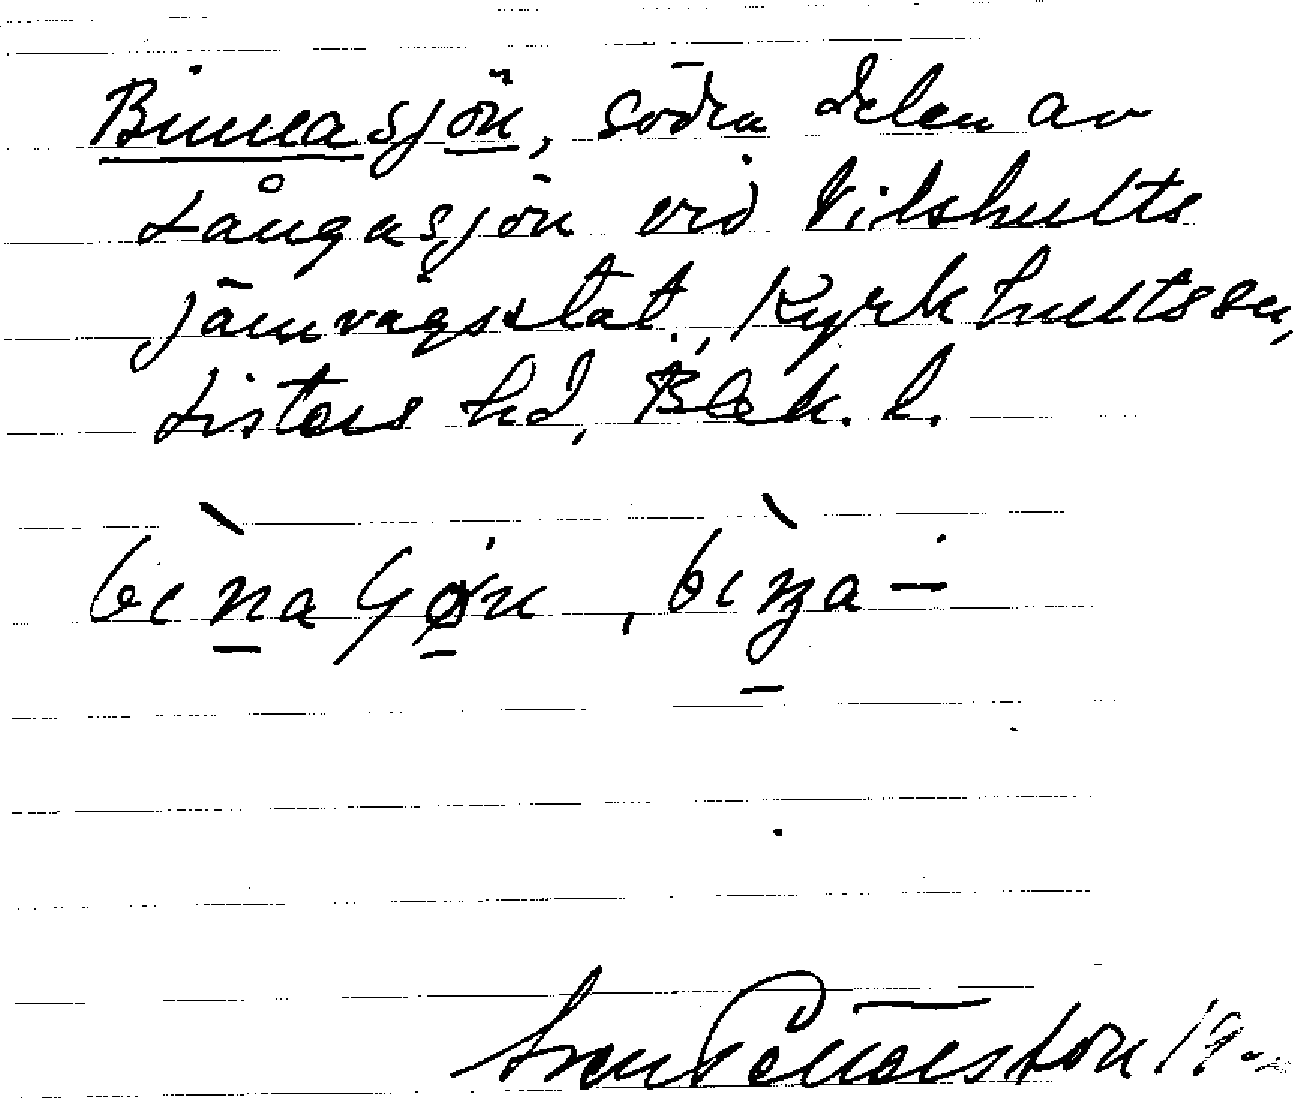 Binnasjön, södra delen av
Långasjön vid Vilshults
järnvägsstat., Kyrkhultssn,
Listers hd, Blek. l.
Sven Petterson 19